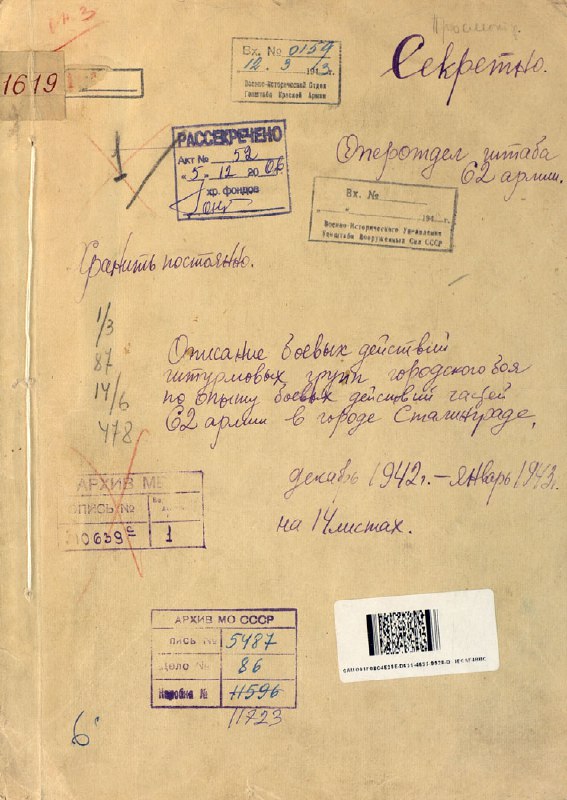 Просмотр.
Вх. № 0159
12. 3 1943 г.
Военно-Исторический Отдел
Генштаба Красной Армии
Секретно.
1619
РАССЕКРЕЧЕНО
Акт № 52
"5" 12 2006
хр. фондов
1
Оперотдел штаба
62 армии.
Вх. №
194 г.
Военно-Исторического Управления
Генштаба Вооруженных Сил СССР
Хранить постоянно.
1/3
87
14/6
478
Описание боевых действий
штурмовых групп городского боя
по опыту боевых действий частей
62 армии в городе Сталинграде,
декабрь 1942 г. – январь 1943 г.
на 14 листах.
АРХИВ МО
ОПИСЬ №
10639с 1
АРХИВ МО СССР
Опись № 5487
Дело № 86
Коробка № 11596
11723
6